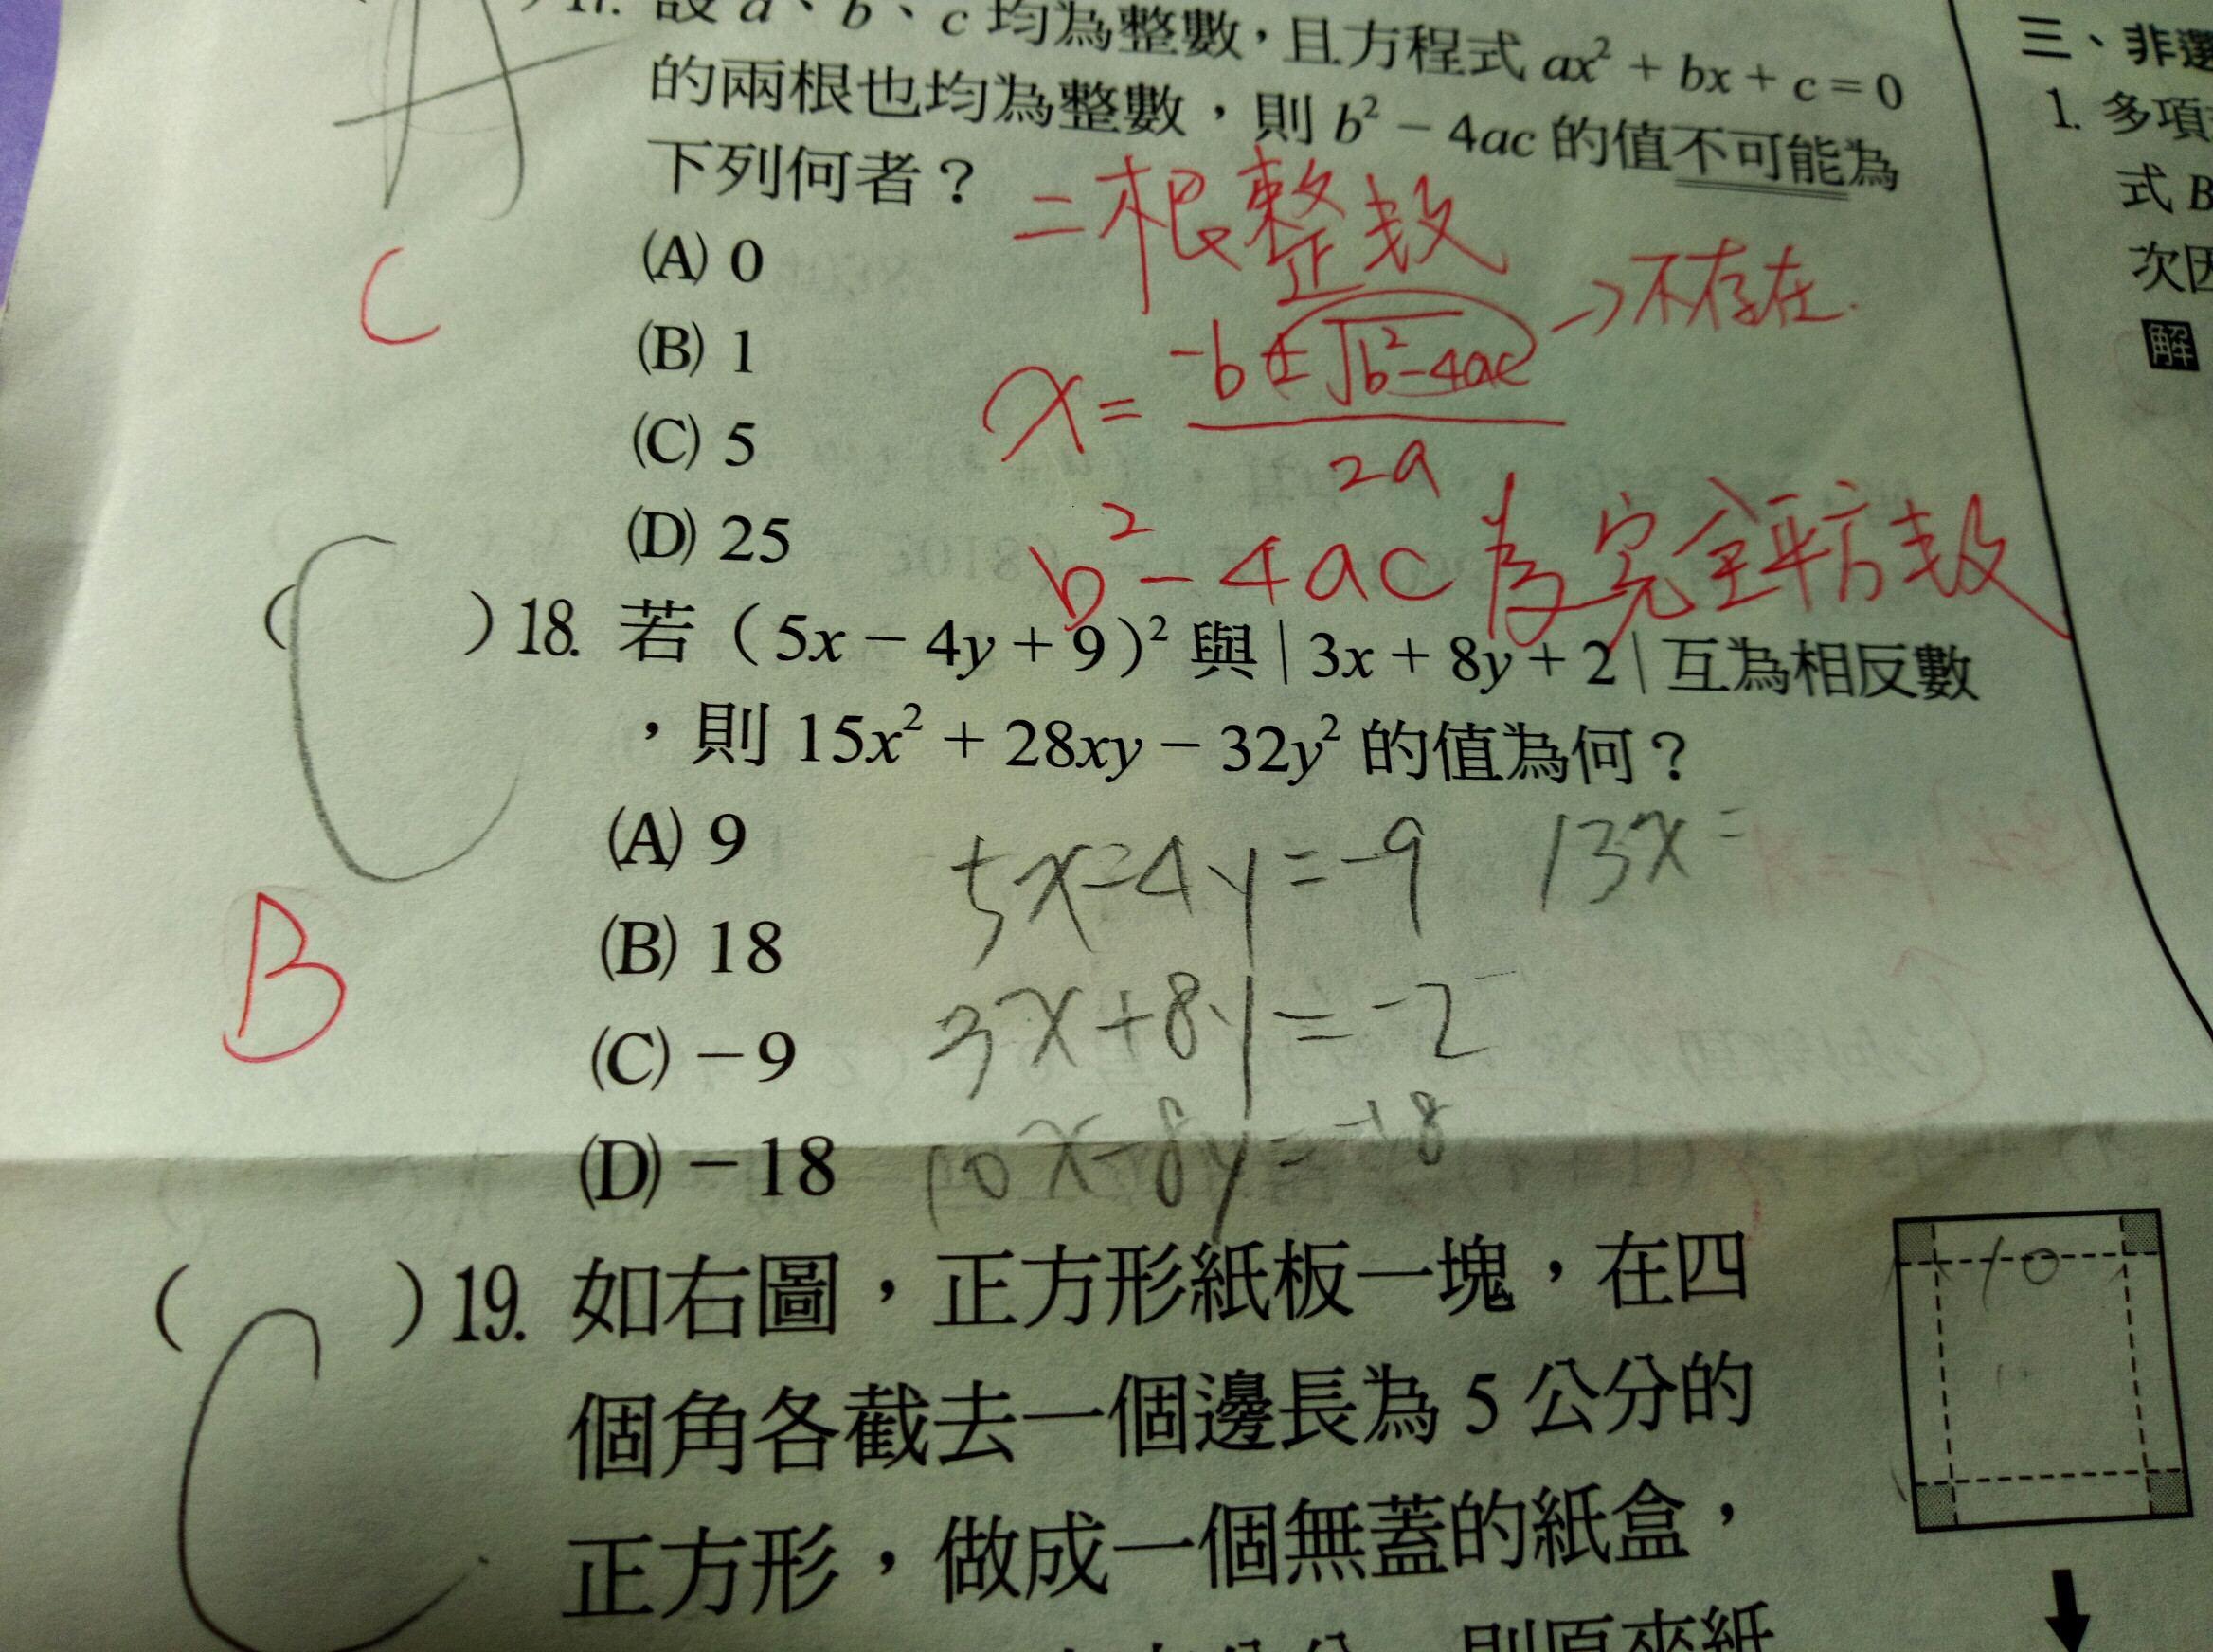 17. 設 a、b、c 均為整數，且方程式 ax² + bx + c = 0
的兩根也均為整數，則 b² − 4ac 的值不可能為
下列何者？
二根整数
C
(A) 0
→不存在.
(B) 1
x = (-b ± √b²-4ac) / 2a
(C) 5
(D) 25
b²-4ac 為完全平方数
C
( )18. 若（5x − 4y + 9）² 與 | 3x + 8y + 2 | 互為相反數
，則 15x² + 28xy − 32y² 的值為何？
(A) 9
5x-4y=-9
13x=
B
(B) 18
3x+8y=-2
(C) −9
(D) −18
10x-8y=-18
C
( )19. 如右圖，正方形紙板一塊，在四
個角各截去一個邊長為 5 公分的
正方形，做成一個無蓋的紙盒，
10
三、非選
1. 多項
式 B
次因
解